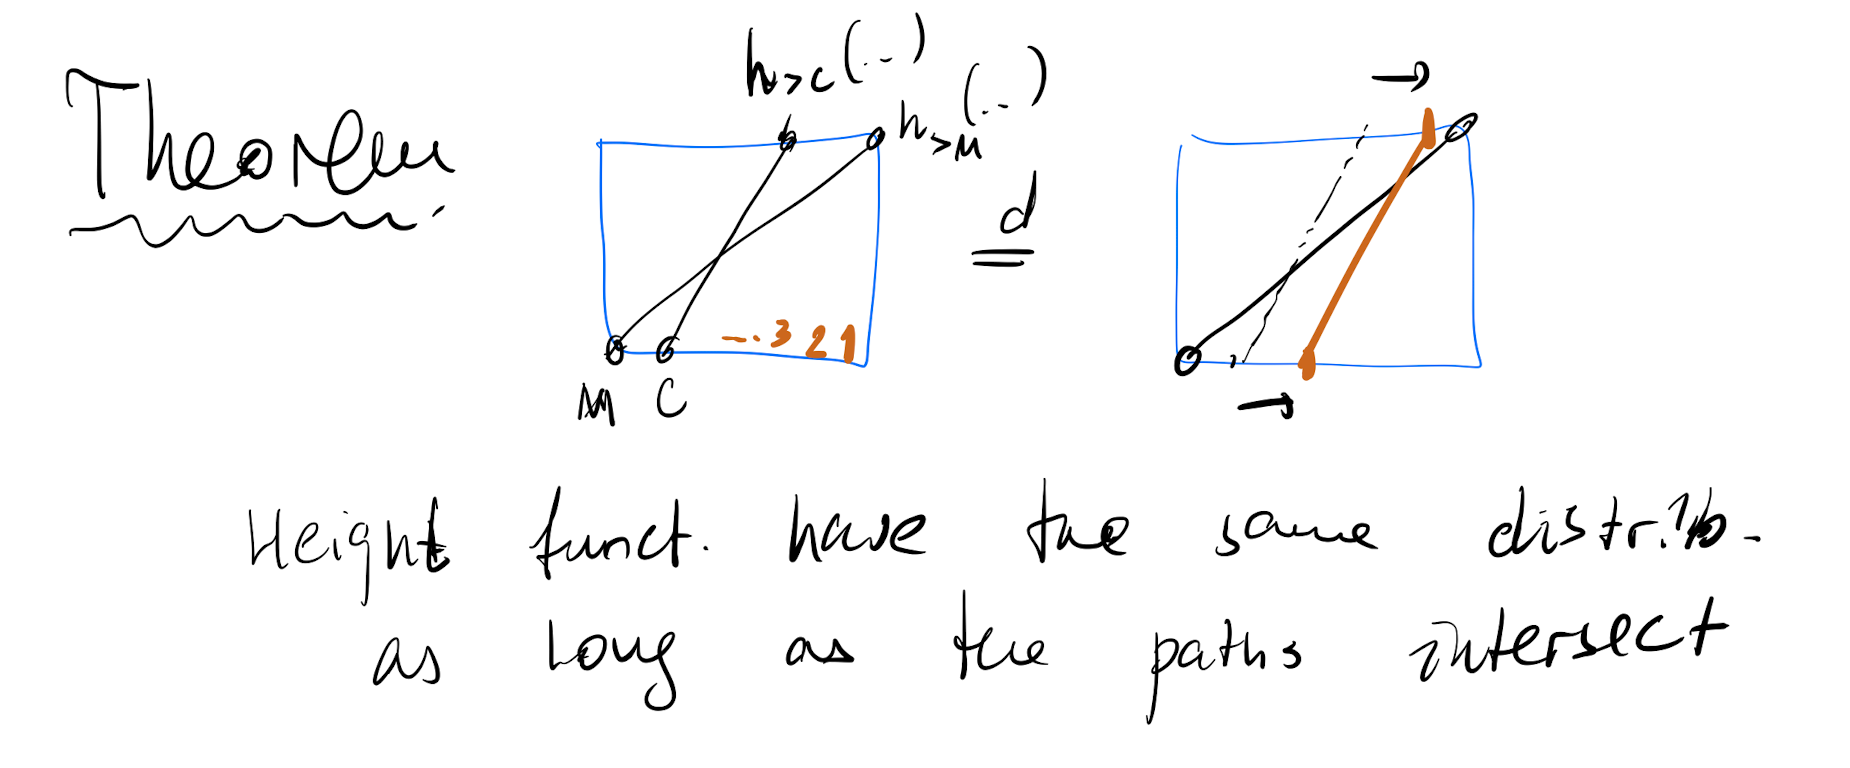 Theorem
h>c(...)
h>M(...)
d
-..3 2 1
M C
Height funct. have the same distrib.
as long as the paths intersect